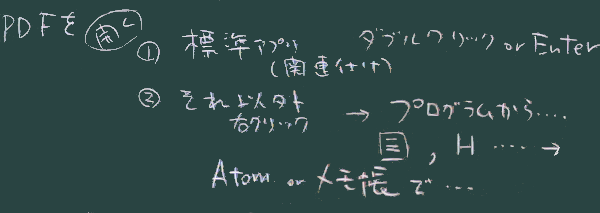 PDFを開く
① 標準アプリ ダブルクリック or Enter
(関連付け)
② それ以外 → プログラムから....
右クリック
, H ..... →
Atom or メモ帳で...